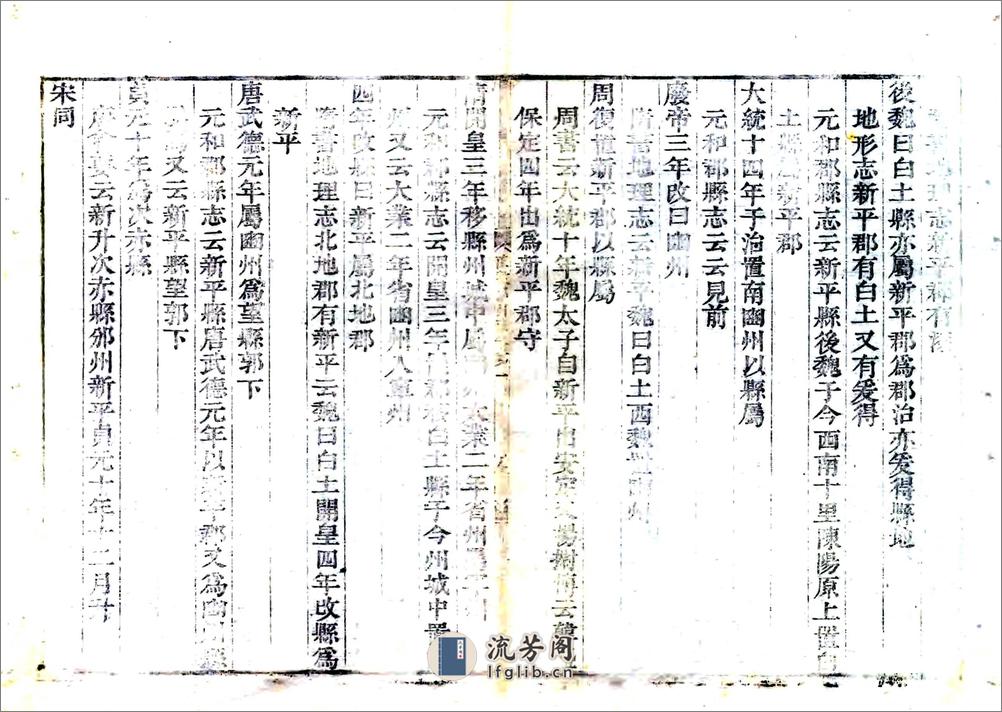 地理志新平郡有
後魏曰白土縣亦屬新平郡爲郡治亦爰得縣地
地形志新平郡有白土又有爰得
元和郡縣志云新平縣後魏于今西南十里陳陽原上置白
土縣屬新平郡
大統十四年于治置南豳州以縣屬
元和郡縣志云云見前
廢帝三年改曰豳州
隋書地理志云新平魏曰白土西魏置豳州
周復置新平郡以縣屬
周書云大統十年魏太子自新平出安定
保定四年出爲新平郡守
隋開皇三年移縣州城中屬 大業二年省州
元和郡縣志云開皇三年 白土縣于今州城中置
州又云大業二年省豳州入寧州
四年改縣曰新平屬北地郡
隋書地理志北地郡有新平云魏曰白土開皇四年改縣爲
新平
唐武德元年屬豳州爲望縣郭下
元和郡縣志云新平縣唐武德元年以 郡又爲豳
又云新平縣望郭下
貞元十年爲次赤縣
唐會要云新升次赤縣邠州新平貞元十年十二月升
宋同
流芳阁
lfglib.cn